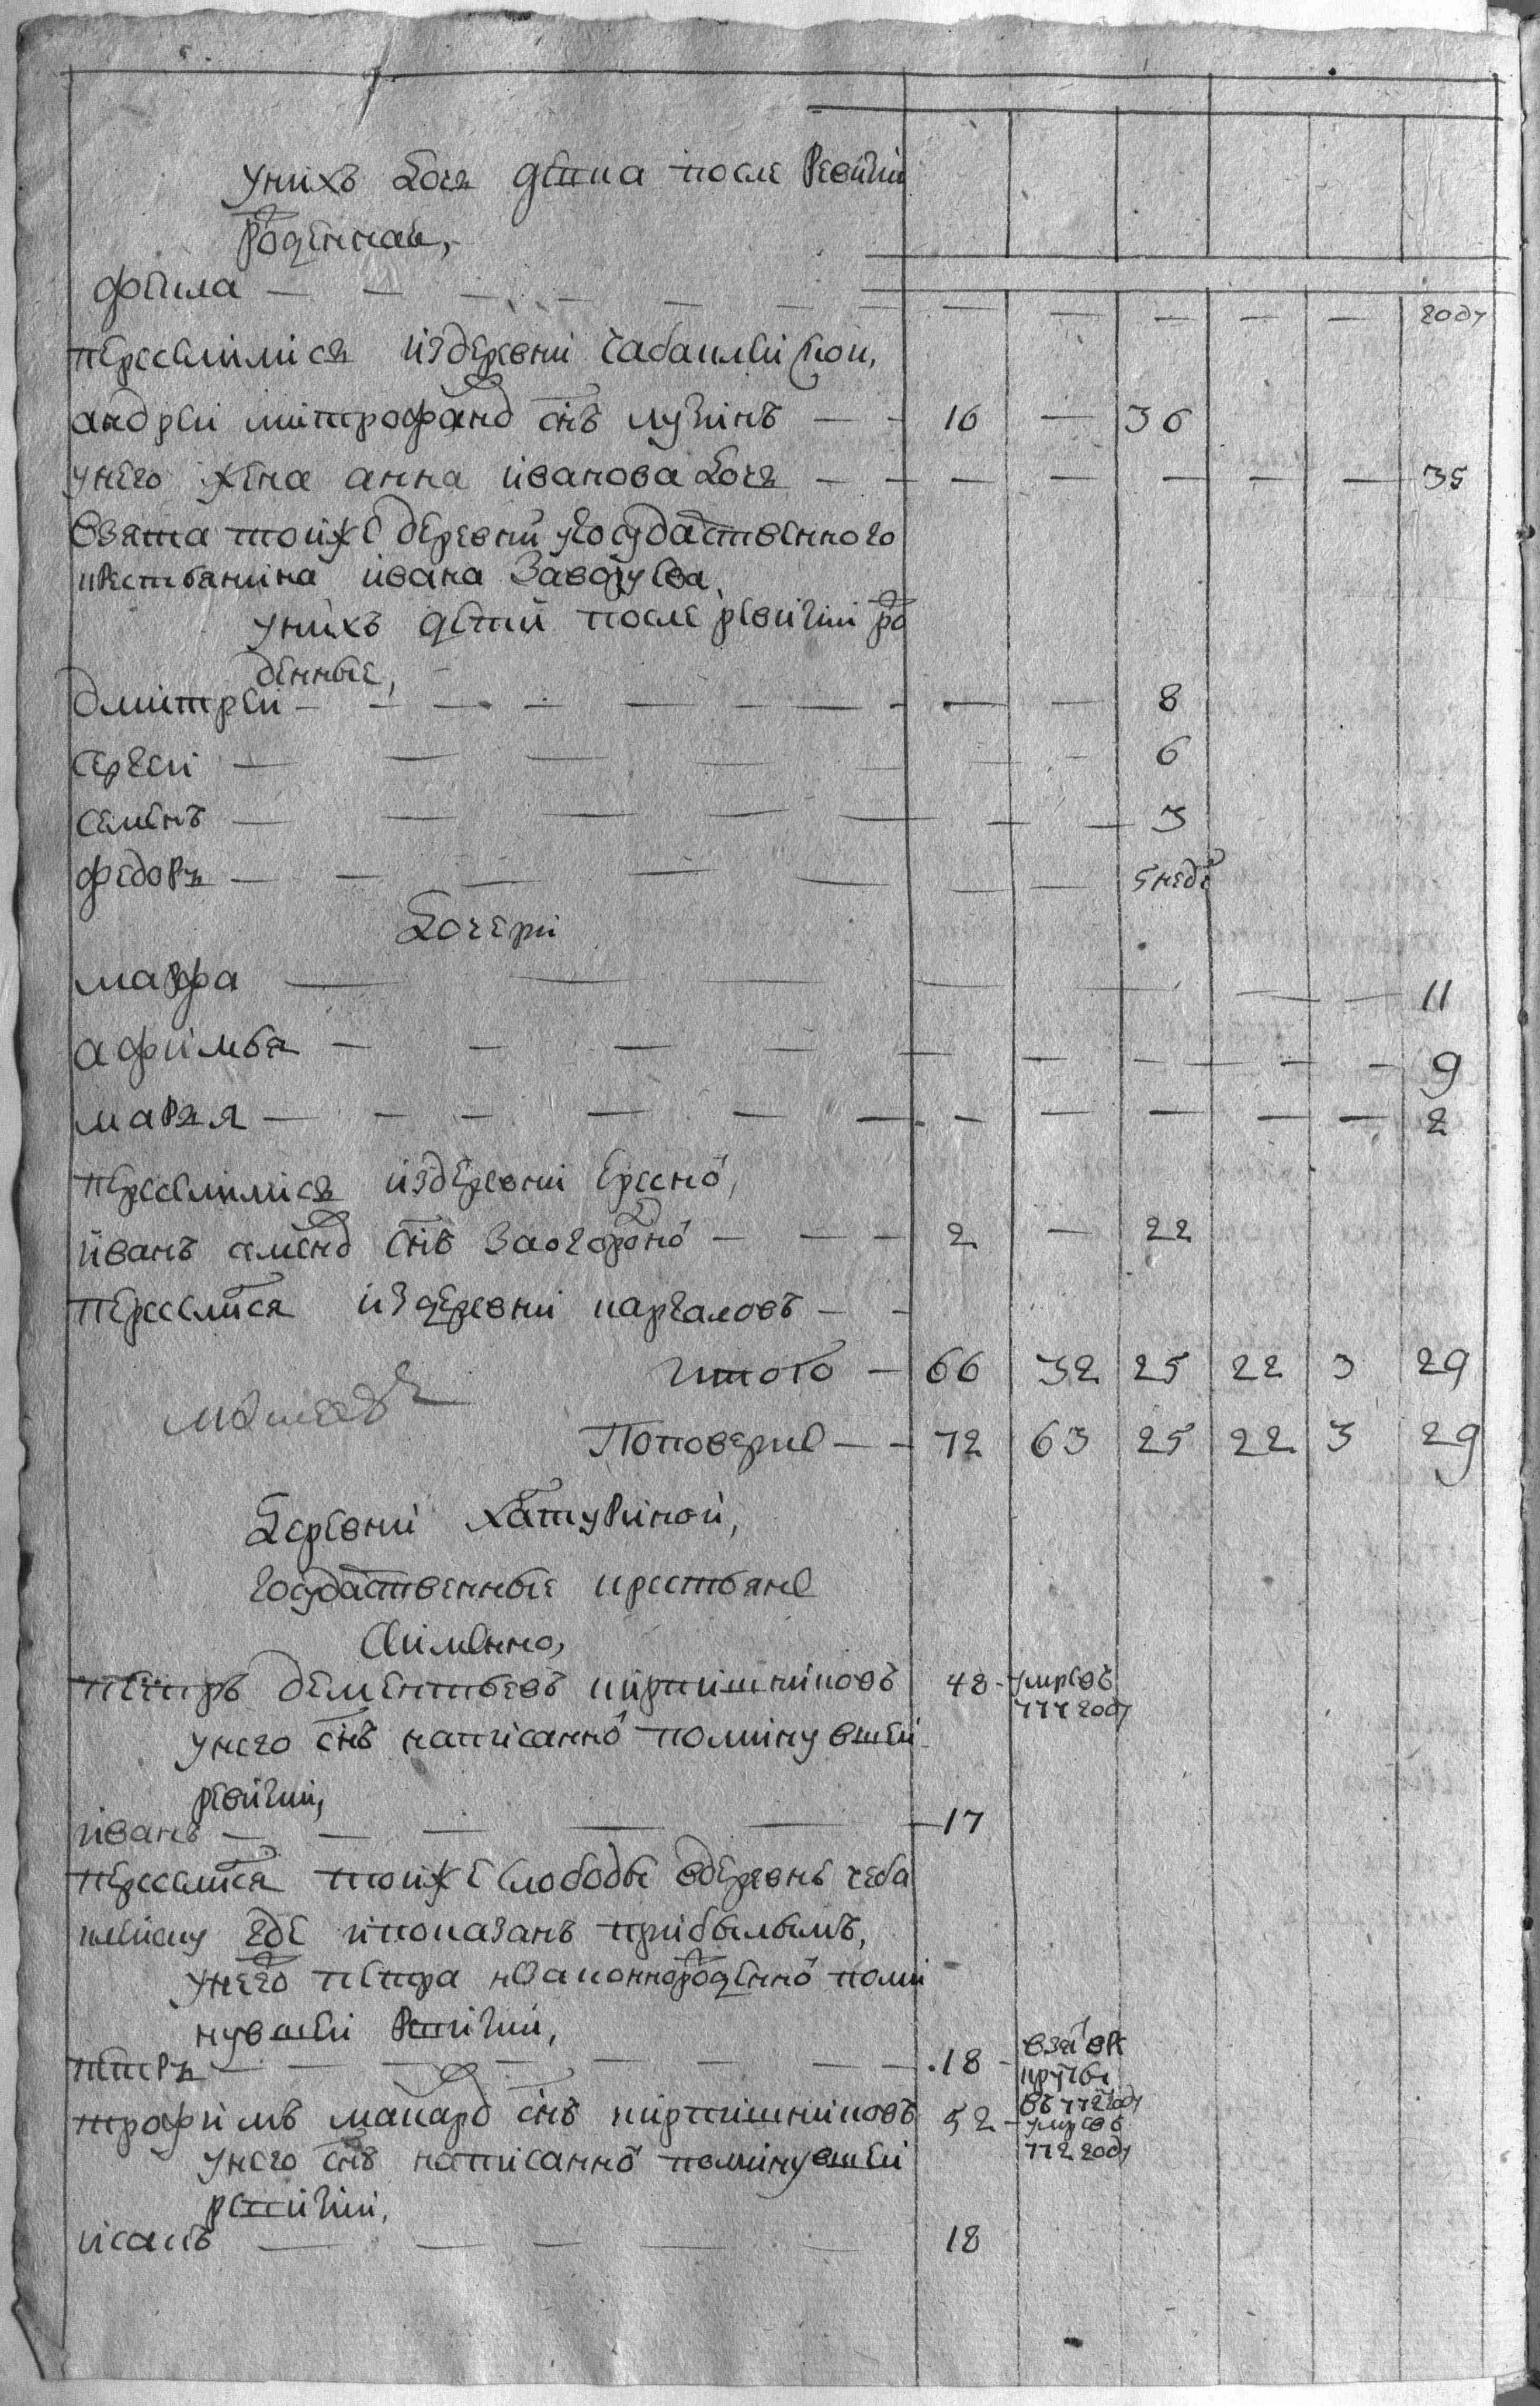 унихъ дочь девка после Ревизии
Роденная,
фекла — — — — — — — — — — — году
переселилися издеревни чабаклеи ской,
андреи митрофанов снъ лузинъ — — 16 — 36
унего жена анна иванова дочь — — — — — — — 35
взята тойже деревни угосударственного
крестьянина ивана
унихъ дети после ревизии ро
денные,
дмитреи — — — — — — — — — 8
сергеи — — — — — — — 6
семенъ — — — — — — — 3
федоръ — — — — — — — 5 неде
дочери
марфа — — — — — — — — 11
афимья — — — — — — — — — 9
марья — — — — — — — — — — — 2
переселилися издеревни
иванъ семенов снъ — — — 2 — 22
переселился издеревни каргаловъ — —
итого — 66 32 25 22 3 29
Поповерке — — 72 63 25 22 3 29
Деревни Хатуриной,
государственные крестьяне
аименно,
петръ дементьевъ кирпишниковъ 48 - умревъ
777 году
унего снъ написанной поминувшей
ревизии,
иванъ — — — — — — 17
переселился тойже слободы вдеревне чеба
клейску где ипоказанъ прибылымъ,
унего петра незаконнороденно поми
нувшей Ревизии,
петръ — — — — — — — — 18 - взятъ вРе
круты
въ 772 году
трофимъ макаров снъ кирпишниковъ 52 - умревъ
772 году
унего снъ написанной поминувшей
ревизии,
исакъ — — — — — 18